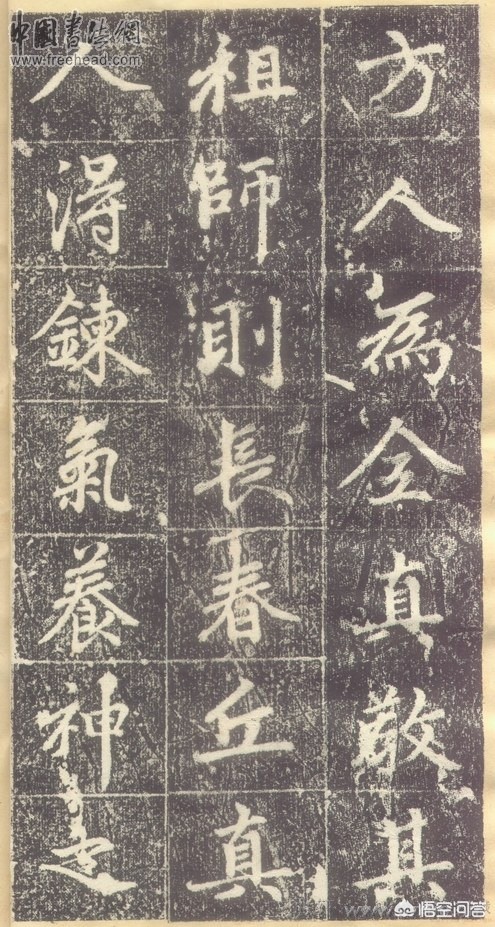 方人為全真教其
祖師則長春丘真
人得鍊氣養神
中國書法網
www.freehead.com
悟空问答